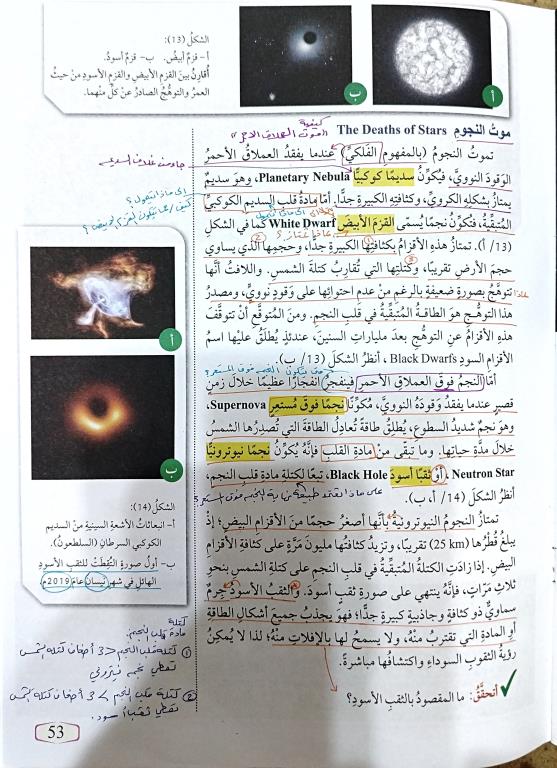 الشكلُ (13):
أ- قزمٌ أبيضُ. ب- قزمٌ أسودُ.
أُقارِنُ بينَ القزمِ الأبيضِ والقزمِ الأسودِ منْ حيثُ
العمرُ والتوهُّجُ الصادرُ عنْ كلٍّ منهما.
ب
أ
موتُ النجومِ The Deaths of Stars
تموتُ النجومُ (بالمفهومِ الفَلَكيِّ) عندَما يفقدُ العملاقُ الأحمرُ
الوَقودَ النوويَّ، فيُكوِّنُ سديمًا كوكبيًّا Planetary Nebula، وهوَ سديمٌ
يمتازُ بشكلِهِ الكُرويِّ، وكثافتِهِ الكبيرةِ جدًّا. أمّا مادةُ قلبِ السديمِ الكوكبيِّ
المتبقّيةُ، فتُكوِّنُ نجمًا يُسمّى القزمَ الأبيضَ White Dwarf كما في الشكلِ
(13/ أ). تمتازُ هذهِ الأقزامُ بكثافتِها الكبيرةِ جدًّا، وحجمِها الذي يساوي
حجمَ الأرضِ تقريبًا، وكتلتِها التي تُقارِبُ كتلةَ الشمسِ. واللافتُ أنَّها
تتوهَّجُ بصورةٍ ضعيفةٍ بالرغمِ منْ عدمِ احتوائِها على وَقودٍ نوويٍّ، ومصدرُ
هذا التوهُّجِ هوَ الطاقةُ المتبقّيةُ في قلبِ النجمِ. ومنَ المتوقَّعِ أنْ تتوقَّفَ
هذهِ الأقزامُ عنِ التوهُّجِ بعدَ ملياراتِ السنينَ، عندئذٍ يُطلَقُ عليْها اسمُ
الأقزامِ السودِ Black Dwarfs ، أنظُرُ الشكلَ (13/ ب).
أمّا النجمُ فوقَ العملاقِ الأحمرِ فينفجرُ انفجارًا عظيمًا خلالَ زمنٍ
قصيرٍ عندَما يفقدُ وَقودَهُ النوويَّ، مُكوِّنًا نجمًا فوقَ مُستعِرٍ Supernova،
وهوَ نجمٌ شديدُ السطوعِ، يُطلِقُ طاقةً تُعادِلُ الطاقةَ التي تُصدِرُها الشمسُ
خلالَ مدَّةِ حياتِها. وما تبقّى منْ مادةِ القلبِ فإنَّهُ يُكوِّنُ نجمًا نيوترونيًّا
Neutron Star ، أوْ ثقبًا أسودَ Black Hole، تبعًا لكتلةِ مادةِ قلبِ النجمِ،
أنظُرُ الشكلَ (14/ أ، ب).
تمتازُ النجومُ النيوترونيةُ بأنَّها أصغرُ حجمًا منَ الأقزامِ البيضِ؛ إذْ
يبلغُ قُطْرُها (25 km) تقريبًا، وتزيدُ كثافتُها مليونَ مَرَّةٍ على كثافةِ الأقزامِ
البيضِ. إذا زادَتِ الكتلةُ المتبقّيةُ في قلبِ النجمِ على كتلةِ الشمسِ بنحوِ
ثلاثِ مرّاتٍ، فإنَّهُ ينتهي على صورةِ ثقبٍ أسودَ. والثقبُ الأسودُ جِرمٌ
سماويٌّ ذو كثافةٍ وجاذبيةٍ كبيرةٍ جدًّا؛ فهوَ يجذبُ جميعَ أشكالِ الطاقةِ
أوِ المادةِ التي تقتربُ منْهُ، ولا يسمحُ لها بالإفلاتِ منْهُ؛ لذا لا يُمكِنُ
رؤيةُ الثقوبِ السوداءِ واكتشافُها مباشرةً.
أتحقَّقُ: ما المقصودُ بالثقبِ الأسودِ؟
أ
ب
الشكلُ (14):
أ- انبعاثاتُ الأشعةِ السينيةِ منَ السديمِ
الكوكبيِّ السرطانِ (السلطعونُ).
ب- أولُ صورةٍ التُقِطَتْ للثقبِ الأسودِ
الهائلِ في شهرِ نيسانَ عامَ 2019م.
كتلة
مادة قلب النجم:
① كتلة قلب النجم < 3 أضعاف كتلة الشمس
تعطي نجم نيتروني
② كتلة قلب النجم > 3 أضعاف كتلة الشمس
تعطي ثقباً أسود.
53